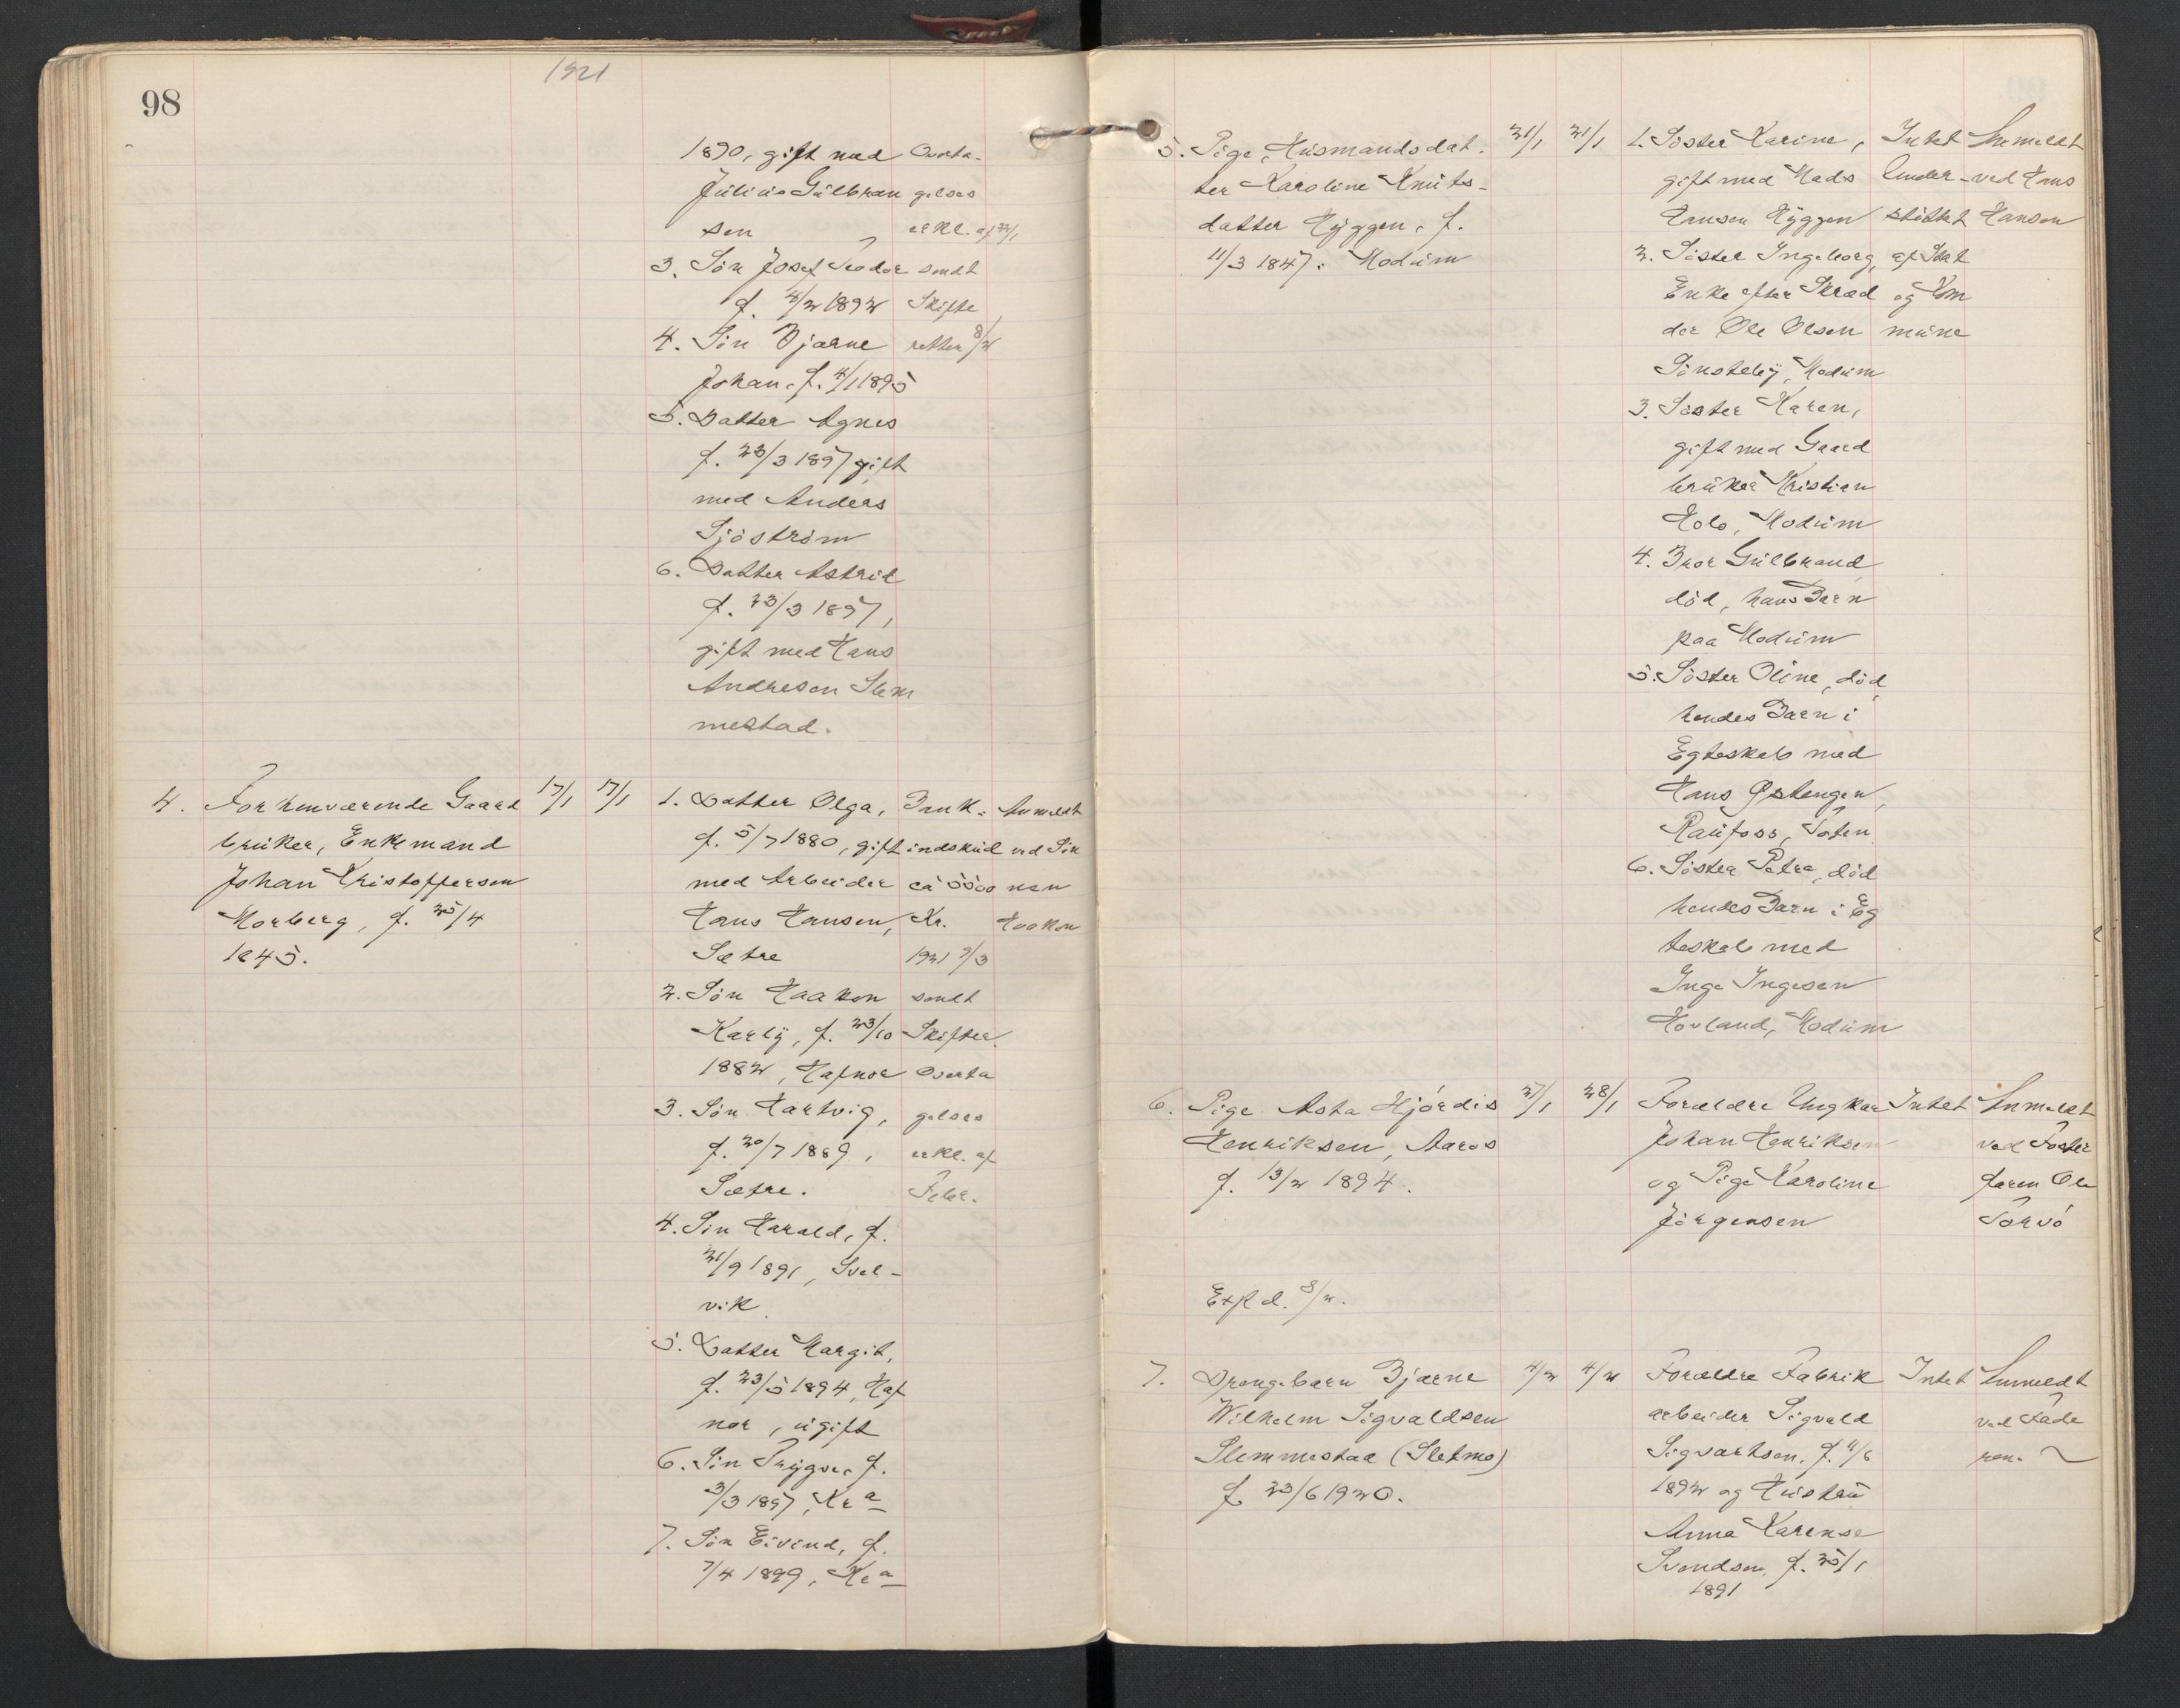 98
1921
1890, gift med
Julius Gulbran
sen
3. Sön Josef Teodor
f. 4/2 1892
4. Sön Bjarne
Johan. f. 4/1 1895
5. Datter Agnes
f. 23/3 1897 gift
med Anders
Sjöström
6. Datter Astrid
f. 23/3 1897,
gift med Hans
Andresen Slem
mestad.
Overta-
gelses
erkl. af 22/1
sendt
Skifte
retten 8/2
4. Forhenværende Gaard
bruker, Enkemand
Johan Kristoffersen
Morberg, f. 25/4
1845.
17/1 17/1
1. Datter Olga,
f. 5/7 1880, gift
med Arbeider
Hans Hansen,
Sætre
2. Sön Haakon
Karly, f. 23/10
1882, Hafnor
3. Sön Hartvig,
f. 20/7 1889,
Sætre.
4. Sön Harald, f.
21/9 1891, Svel-
vik
5. Datter Margit,
f. 23/5 1894, Haf
nor, ugift
6. Sön Trygve, f.
3/3 1897, Kr a
7. Sön Eivind, f.
7/4 1899, Kr a
Bank-
indskud
ca 5500
Kr.
1921 9/3
sendt
Skifter.
Overta
gelses
erkl. af
Febr.
Anmeldt
ved Sön
nen
Haakon
5. Pige, Husmandsdat.
ter Karoline Knuts-
datter Hyggen, f.
11/3 1847. Modum
21/1 21/1
1. Söster Karine,
gift med Mads
Hansen Hyggen
2. Söster Ingeborg,
Enke efter Skræd
der Ole Olsen
Sönsteby, Modum
3. Söster Karen,
gift med Gaard
bruker Kristian
Holo, Modum
4. Bror Gulbrand
död, hans Barn
paa Modum
5. Söster Oline, död,
hendes Barn i
Egteskab med
Hans Østengen,
Raufoss, Toten
6. Söster Petra, död
hendes Barn i Eg
teskab med
Inge Ingesen
Hovland, Modum
Intet
Under-
støttet
af Stat
og Kom
mune
Anmeldt
ved Hans
Hansen
6. Pige Asta Hjördis
Henriksen, Aaros
f. 13/2 1894.
Exp d. 8/2.
27/1 28/1
Forældre Ungkar
Johan Henriksen
og Pige Karoline
Jörgensen
Intet
Anmeldt
ved Foster
faren Ole
Torvö
7. Drengebarn Bjarne
Wilhelm Sigvaldsen
Slemmestad (Sletmo)
f. 23/6 1920.
4/2 4/2
Forældre Fabrik
arbeider Sigvald
Sigvartsen, f. 4/6
1892 og Hustru
Anna Karense
Svendsen, f. 25/1
1891
Intet
Anmeldt
ved Fade
ren.